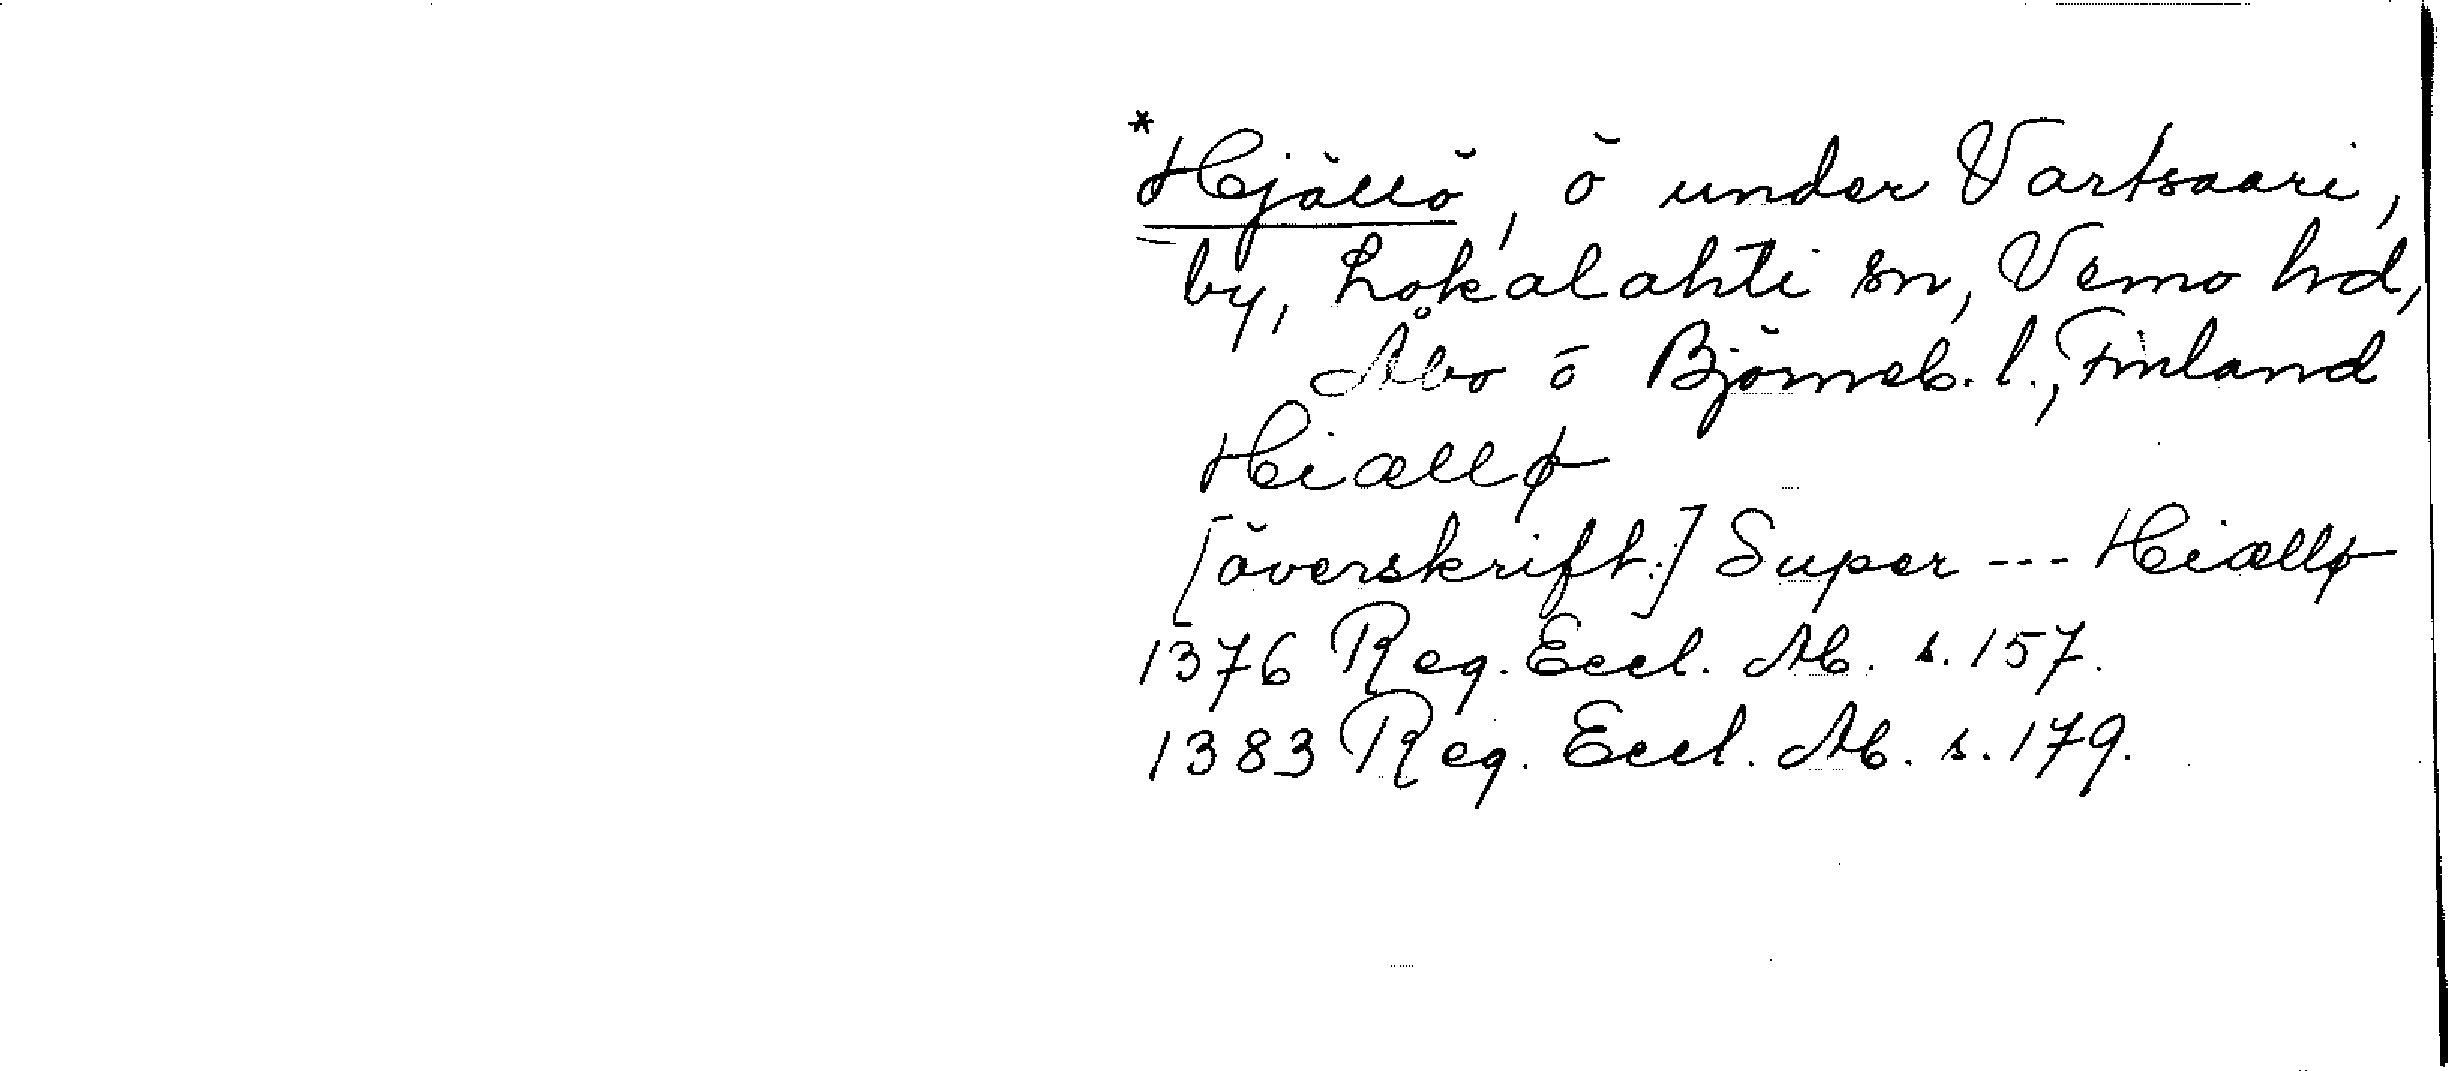 *Hjällö, ö under Vartsaari,
by, Lokalahti sn, Vemo hd,
Åbo o Björneb. l., Finland
Hiællø
[överskrift:] Super --- Hiællø
1376 Reg. Eccl. Ab. s. 157.
1383 Reg. Eccl. Ab. s. 179.